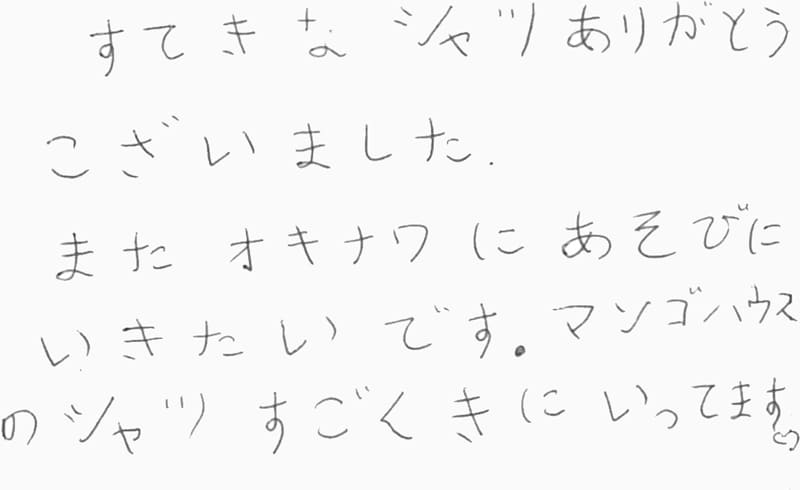 すてきな シャツ ありがとう
こざいました.
また オキナワ に あそびに
いきたいです。マンゴハウス
のシャツ すごく きに いってます♡